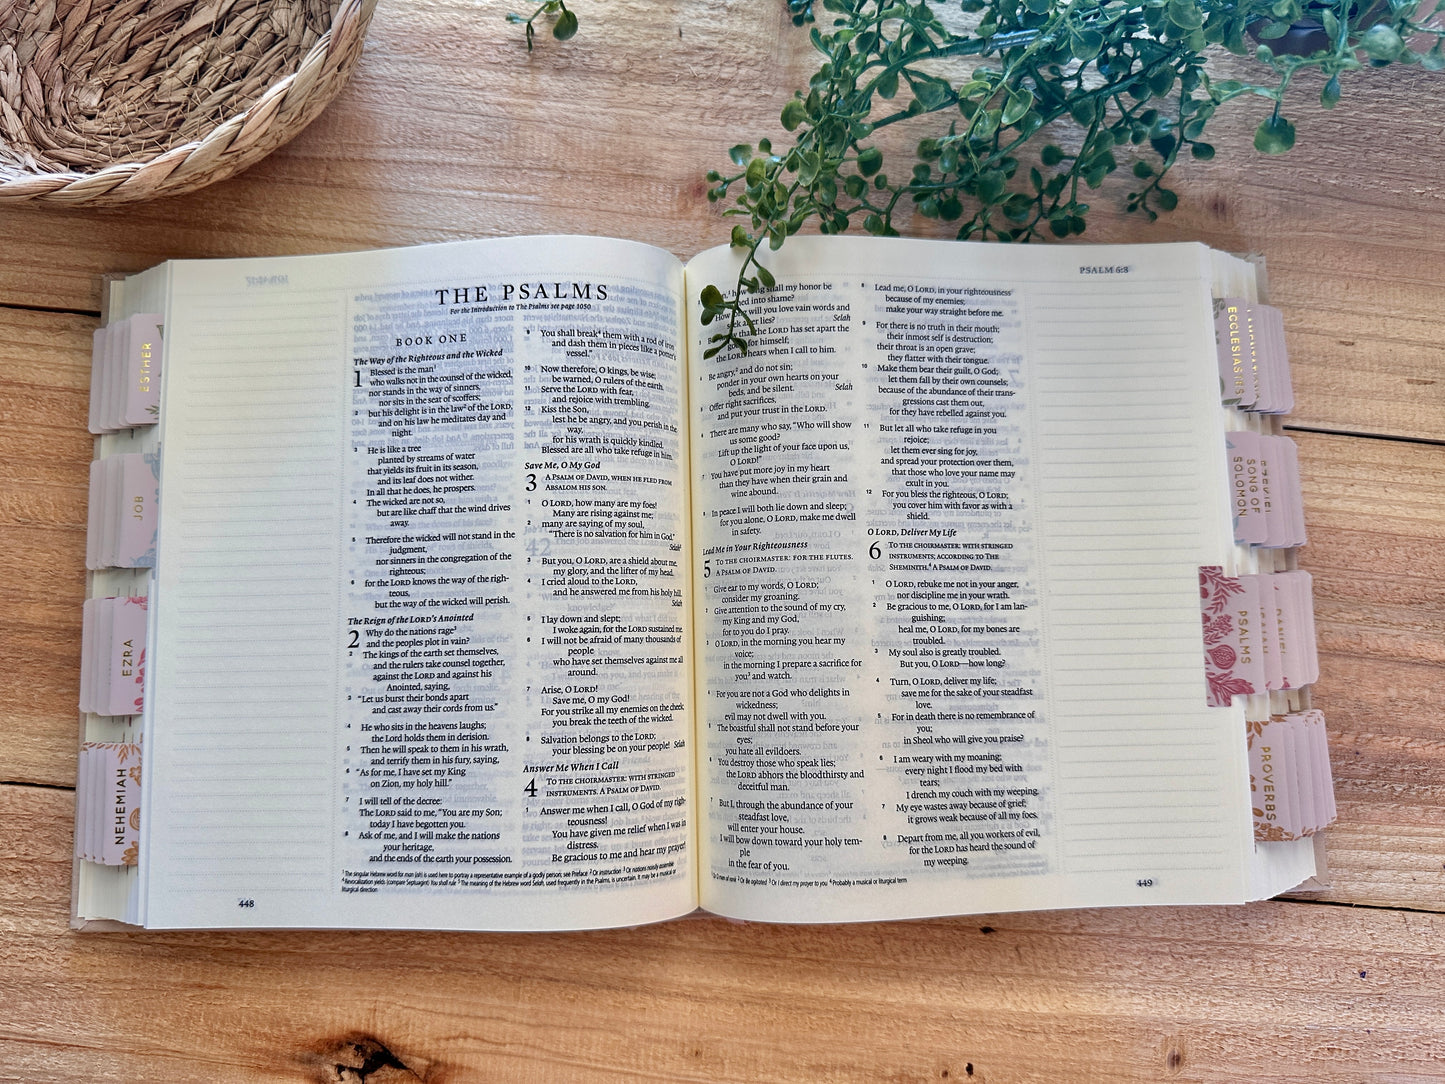 THE PSALMS
For the Introduction to The Psalms see page 1050
BOOK ONE
The Way of the Righteous and the Wicked
1 Blessed is the man¹
who walks not in the counsel of the wicked,
nor stands in the way of sinners,
nor sits in the seat of scoffers;
2 but his delight is in the law² of the LORD,
and on his law he meditates day and
night.
3 He is like a tree
planted by streams of water
that yields its fruit in its season,
and its leaf does not wither.
In all that he does, he prospers.
4 The wicked are not so,
but are like chaff that the wind drives
away.
5 Therefore the wicked will not stand in the
judgment,
nor sinners in the congregation of the
righteous;
6 for the LORD knows the way of the righ-
teous,
but the way of the wicked will perish.
The Reign of the LORD's Anointed
2 Why do the nations rage³
and the peoples plot in vain?
2 The kings of the earth set themselves,
and the rulers take counsel together,
against the LORD and against his
Anointed, saying,
3 "Let us burst their bonds apart
and cast away their cords from us."
4 He who sits in the heavens laughs;
the Lord holds them in derision.
5 Then he will speak to them in his wrath,
and terrify them in his fury, saying,
6 "As for me, I have set my King
on Zion, my holy hill."
7 I will tell of the decree:
The LORD said to me, "You are my Son;
today I have begotten you.
8 Ask of me, and I will make the nations
your heritage,
and the ends of the earth your possession.
9 You shall break⁴ them with a rod of iron
and dash them in pieces like a potter's
vessel."
10 Now therefore, O kings, be wise;
be warned, O rulers of the earth.
11 Serve the LORD with fear,
and rejoice with trembling.
12 Kiss the Son,
lest he be angry, and you perish in the
way,
for his wrath is quickly kindled.
Blessed are all who take refuge in him.
Save Me, O My God
3 A PSALM OF DAVID, WHEN HE FLED FROM
ABSALOM HIS SON.
1 O LORD, how many are my foes!
Many are rising against me;
2 many are saying of my soul,
"There is no salvation for him in God."
Selah⁵
3 But you, O LORD, are a shield about me,
my glory, and the lifter of my head.
4 I cried aloud to the LORD,
and he answered me from his holy hill.
Selah
5 I lay down and slept;
I woke again, for the LORD sustained me.
6 I will not be afraid of many thousands of
people
who have set themselves against me all
around.
7 Arise, O LORD!
Save me, O my God!
For you strike all my enemies on the cheek;
you break the teeth of the wicked.
8 Salvation belongs to the LORD;
your blessing be on your people! Selah
Answer Me When I Call
4 TO THE CHOIRMASTER: WITH STRINGED
INSTRUMENTS. A PSALM OF DAVID.
1 Answer me when I call, O God of my righ-
teousness!
You have given me relief when I was in
distress.
Be gracious to me and hear my prayer!
¹ The singular Hebrew word for man (ish) is used here to portray a representative example of a godly person; see Preface ² Or instruction ³ Or nations noisily assemble
⁴ Revocalization yields (compare Septuagint) You shall rule ⁵ The meaning of the Hebrew word Selah, used frequently in the Psalms, is uncertain. It may be a musical or
liturgical direction
448
PSALM 6:8
how shall my honor be
into shame?
will you love vain words and
after lies? Selah
that the LORD has set apart the
for himself;
the LORD hears when I call to him.
4 Be angry,² and do not sin;
ponder in your own hearts on your
beds, and be silent. Selah
5 Offer right sacrifices,
and put your trust in the LORD.
6 There are many who say, "Who will show
us some good?
Lift up the light of your face upon us,
O LORD!"
7 You have put more joy in my heart
than they have when their grain and
wine abound.
8 In peace I will both lie down and sleep;
for you alone, O LORD, make me dwell
in safety.
Lead Me in Your Righteousness
5 TO THE CHOIRMASTER: FOR THE FLUTES.
A PSALM OF DAVID.
1 Give ear to my words, O LORD;
consider my groaning.
2 Give attention to the sound of my cry,
my King and my God,
for to you do I pray.
3 O LORD, in the morning you hear my
voice;
in the morning I prepare a sacrifice for
you³ and watch.
4 For you are not a God who delights in
wickedness;
evil may not dwell with you.
5 The boastful shall not stand before your
eyes;
you hate all evildoers.
6 You destroy those who speak lies;
the LORD abhors the bloodthirsty and
deceitful man.
7 But I, through the abundance of your
steadfast love,
will enter your house.
I will bow down toward your holy tem-
ple
in the fear of you.
8 Lead me, O LORD, in your righteousness
because of my enemies;
make your way straight before me.
9 For there is no truth in their mouth;
their inmost self is destruction;
their throat is an open grave;
they flatter with their tongue.
10 Make them bear their guilt, O God;
let them fall by their own counsels;
because of the abundance of their trans-
gressions cast them out,
for they have rebelled against you.
11 But let all who take refuge in you
rejoice;
let them ever sing for joy,
and spread your protection over them,
that those who love your name may
exult in you.
12 For you bless the righteous, O LORD;
you cover him with favor as with a
shield.
O LORD, Deliver My Life
6 TO THE CHOIRMASTER: WITH STRINGED
INSTRUMENTS; ACCORDING TO THE
SHEMINITH.⁴ A PSALM OF DAVID.
1 O LORD, rebuke me not in your anger,
nor discipline me in your wrath.
2 Be gracious to me, O LORD, for I am lan-
guishing;
heal me, O LORD, for my bones are
troubled.
3 My soul also is greatly troubled.
But you, O LORD—how long?
4 Turn, O LORD, deliver my life;
save me for the sake of your steadfast
love.
5 For in death there is no remembrance of
you;
in Sheol who will give you praise?
6 I am weary with my moaning;
every night I flood my bed with
tears;
I drench my couch with my weeping.
7 My eye wastes away because of grief;
it grows weak because of all my foes.
8 Depart from me, all you workers of evil,
for the LORD has heard the sound of
my weeping.
men of rank ² Or Be agitated ³ Or I direct my prayer to you ⁴ Probably a musical or liturgical term
449
ESTHER
JOB
EZRA
NEHEMIAH
ECCLESIASTES
SONG OF
SOLOMON
PSALMS
PROVERBS